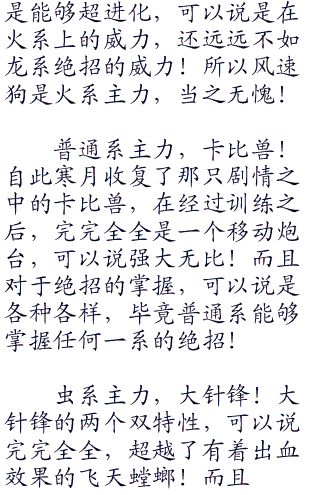 是能够超进化，可以说是在
火系上的威力，还远远不如
龙系绝招的威力！所以风速
狗是火系主力，当之无愧！
普通系主力，卡比兽！
自此寒月收复了那只剧情之
中的卡比兽，在经过训练之
后，完完全全是一个移动炮
台，可以说强大无比！而且
对于绝招的掌握，可以说是
各种各样，毕竟普通系能够
掌握任何一系的绝招！
虫系主力，大针锋！大
针锋的两个双特性，可以说
完完全全，超越了有着出血
效果的飞天螳螂！而且